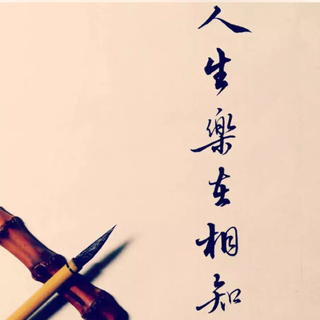 人生樂在相知